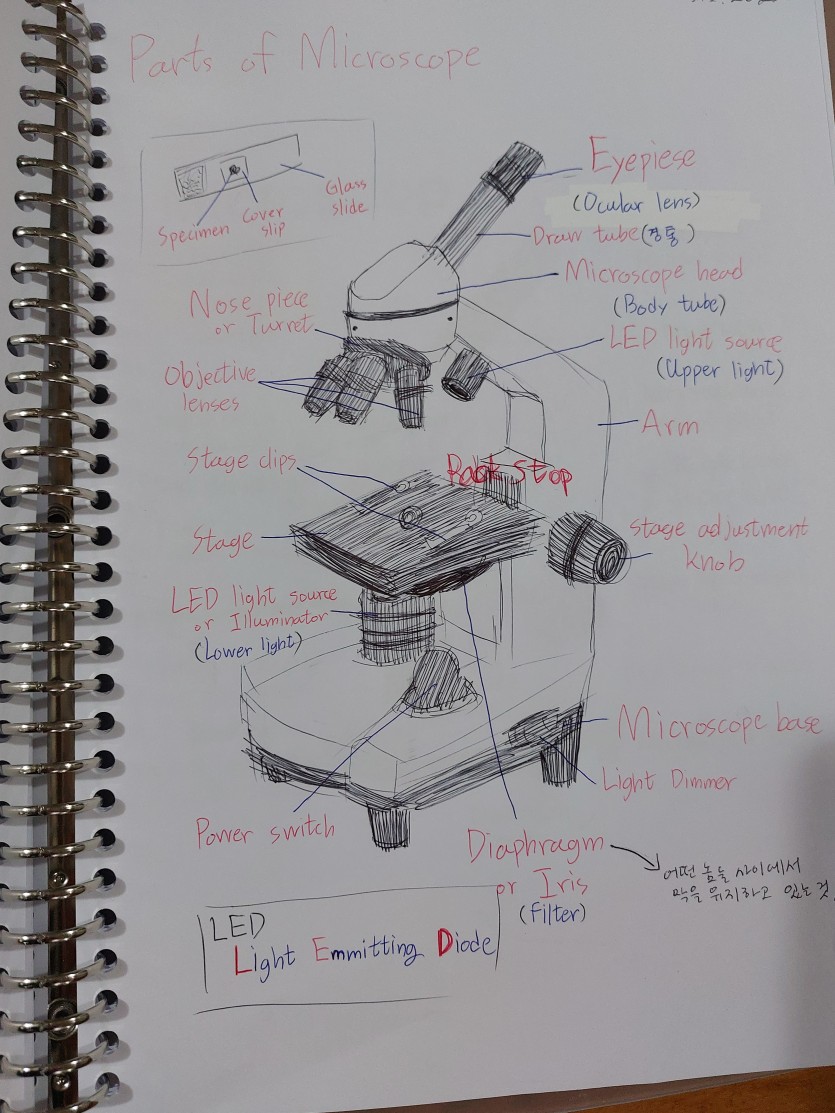 Parts of Microscope
Specimen
Cover
slip
Glass
slide
Eyepiese
(Ocular lens)
Draw tube(경통)
Microscope head
(Body tube)
Nose piece
or Turret
LED light source
(Upper light)
Objective
lenses
Arm
Stage clips
Rack stop
Stage
Stage adjustment
knob
LED light source
or Illuminator
(Lower light)
Microscope base
Light Dimmer
Power switch
Diaphragm
or Iris
(Filter)
어떤 놈들 사이에서
막을 유지하고 있는것.
LED
Light Emmitting Diode